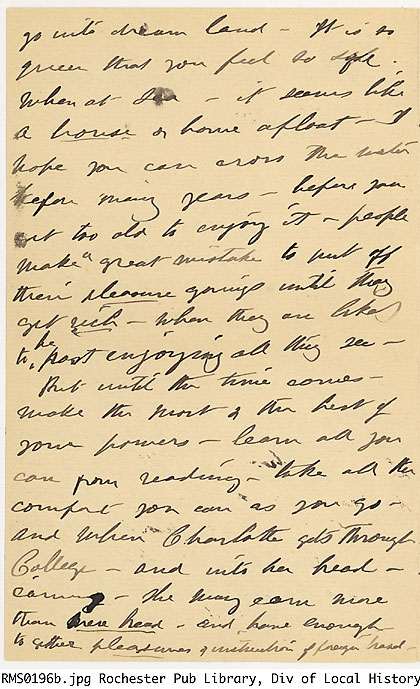 go into dream land - It is so
queer that you feel so safe.
When at Sea - it seems like
a house or home afloat - I
hope you can cross the water
before many years - before you
get too old to enjoy it - people
make a great mistake to put off
their pleasure goings until they
get rich - when they are likely
to be past enjoying all they see -
But until the time comes -
make the most & the best of
your powers - learn all you
can from reading - take all the
comfort you can as you go -
and when Charlotte gets through
College - and into her bread -
earning - she may earn more
than mere bread - and have enough
to gather pleasures & instruction of foreign travel -
RMS0196b.jpg Rochester Pub Library, Div of Local History